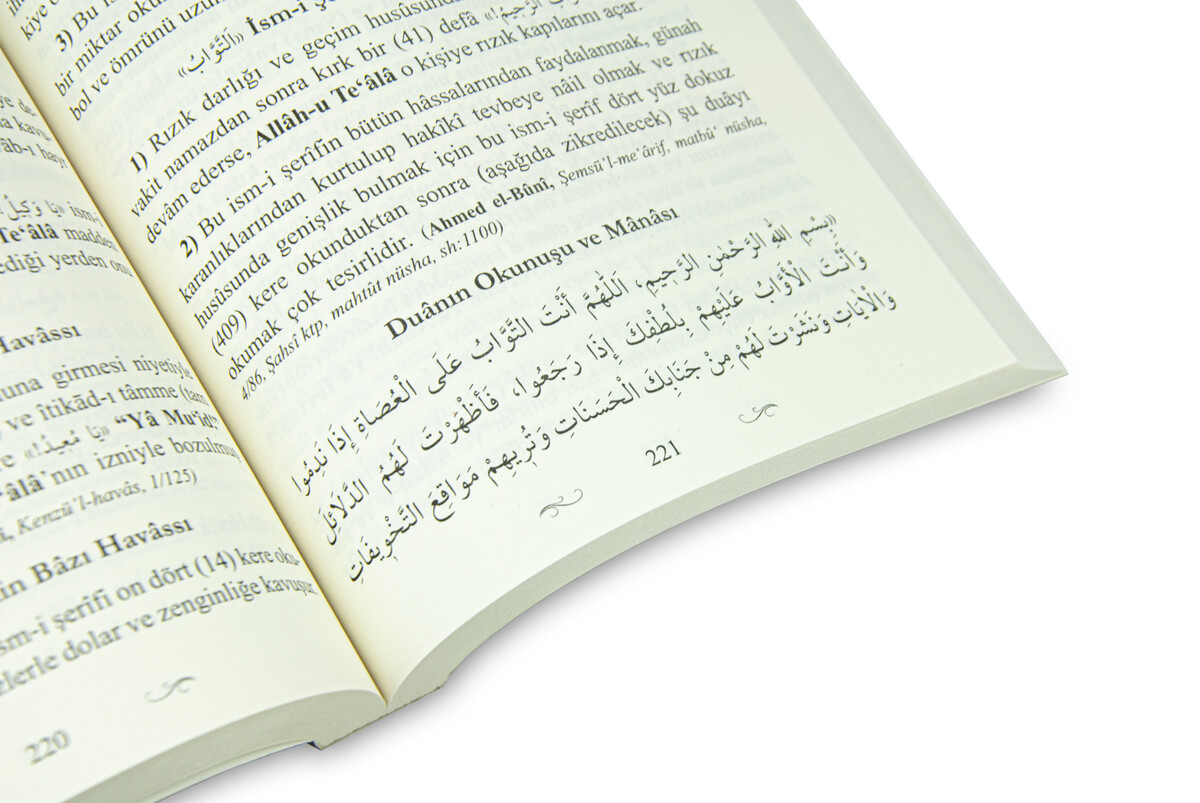 kiye o
3) Bu is
bir miktar okun
bol ve ömrünü uzun
«اَلتَّوَّابُ» İsm-i şe
1) Rızık darlığı ve geçim husûsund
vakit namazdan sonra kırk bir (41) defâ
devâm ederse, Allâh-u Te‘âlâ o kişiye rızık kapılarını açar.
2) Bu ism-i şerîfin bütün hâssalarından faydalanmak, günah
karanlıklarından kurtulup hakîkî tevbeye nâil olmak ve rızık
husûsunda genişlik bulmak için bu ism-i şerîf dört yüz dokuz
(409) kere okunduktan sonra (aşağıda zikredilecek) şu duâyı
okumak çok tesirlidir. (Ahmed el-Bûnî, Şemsü’l-me‘ârif, matbû‘ nüsha,
4/86, Şahsî ktp, mahtût nüsha, sh:1100)
Duânın Okunuşu ve Mânâsı
«بِسْمِ اللهِ الرَّحْمٰنِ الرَّحِيمِ، اَللّٰهُمَّ أَنْتَ التَّوَّابُ عَلَى الْعُصَاةِ إِذَا نَدِمُوا
وَأَنْتَ الْأَوَّابُ عَلَيْهِمْ بِلُطْفِكَ إِذَا رَجَعُوا، فَأَظْهَرْتَ لَهُمُ الدَّلَائِلَ
وَالْآيَاتِ وَنَشَرْتَ لَهُمْ مِنْ جَنَابِكَ الْحَسَنَاتِ وَتُرِيهِمْ مَوَاقِعَ التَّخْوِيفَاتِ
221
ye de
a kavu-
âb-ı hayr
«يَا وَكِيلُ!» ism-
Te‘âlâ madder
ediği yerden onu
Havâssı
una girmesi niyetiyle
ve îtikâd-ı tâmme (tam
e «يَا مُعِيدُ!» “Yâ Mu‘îd!”
‘âlâ’nın izniyle bozulmuş
î, Kenzü’l-havâs, 1/125)
in Bâzı Havâssı
sm-i şerîfi on dört (14) kere oku-
zlerle dolar ve zenginliğe kavuşur
220